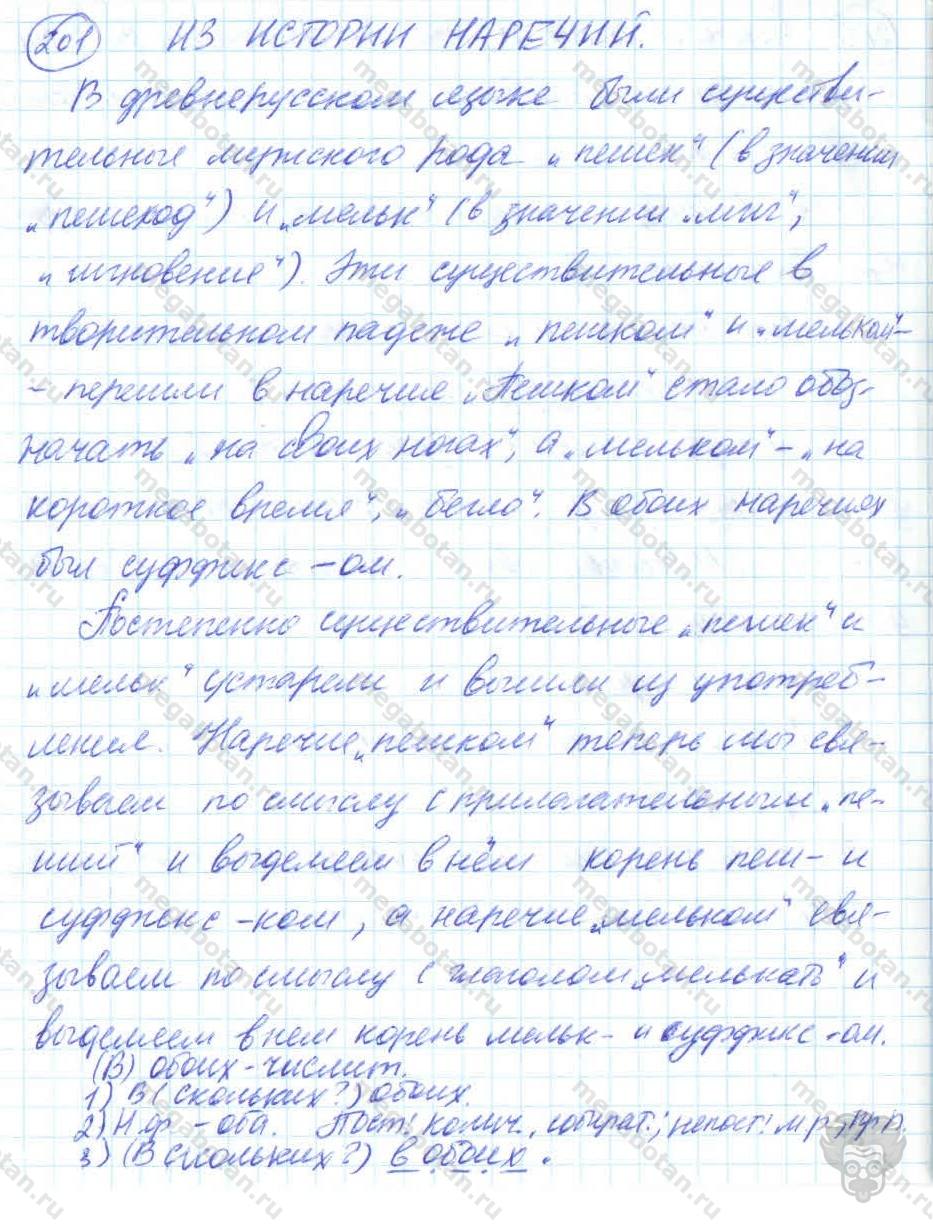 201 ИЗ ИСТОРИИ НАРЕЧИЙ.
В древнерусском языке были существи-
тельные мужского рода „пешек“ (в значении
„пешеход“) и „мельк“ (в значении „миг“,
„мгновение“). Эти существительные в
творительном падеже „пешком“ и „мельком“-
- перешли в наречия. „Пешком“ стало обоз-
начать „на своих ногах“, а „мельком“ - „на
короткое время“, „бегло“. В обоих наречиях
был суффикс -ом.
Постепенно существительные „пешек“ и
„мельк“ устарели и вышли из употреб-
ления. Наречие „пешком“ теперь мы свя-
зываем по смыслу с прилагательным „пе-
ший“ и выделяем в нём корень пеш- и
суффикс -ком, а наречие „мельком“ свя-
зываем по смыслу с глаголом „мелькать“ и
выделяем в нем корень мельк- и суффикс -ом.
(В) обоих - числит.
1) В (скольких?) обоих.
2) Н.ф. - оба. Пост.: колич., собират.; непост.: м.р., П.п.
3) (В скольких?) в обоих.
megabotan.ru